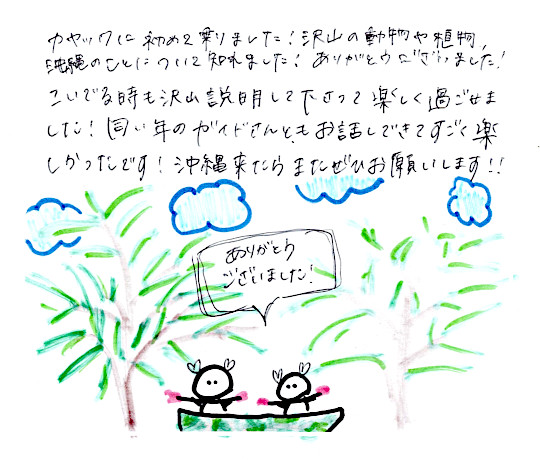 カヤックに初めて乗りました！沢山の動物や植物、
沖縄のことについて知れました！ありがとうございました！
こいでる時も沢山説明して下さって楽しく過ごせま
した！同い年のガイドさんともお話しできてすごく楽
しかったです！沖縄来たらまたぜひお願いします！！
ありがとう
ございました！